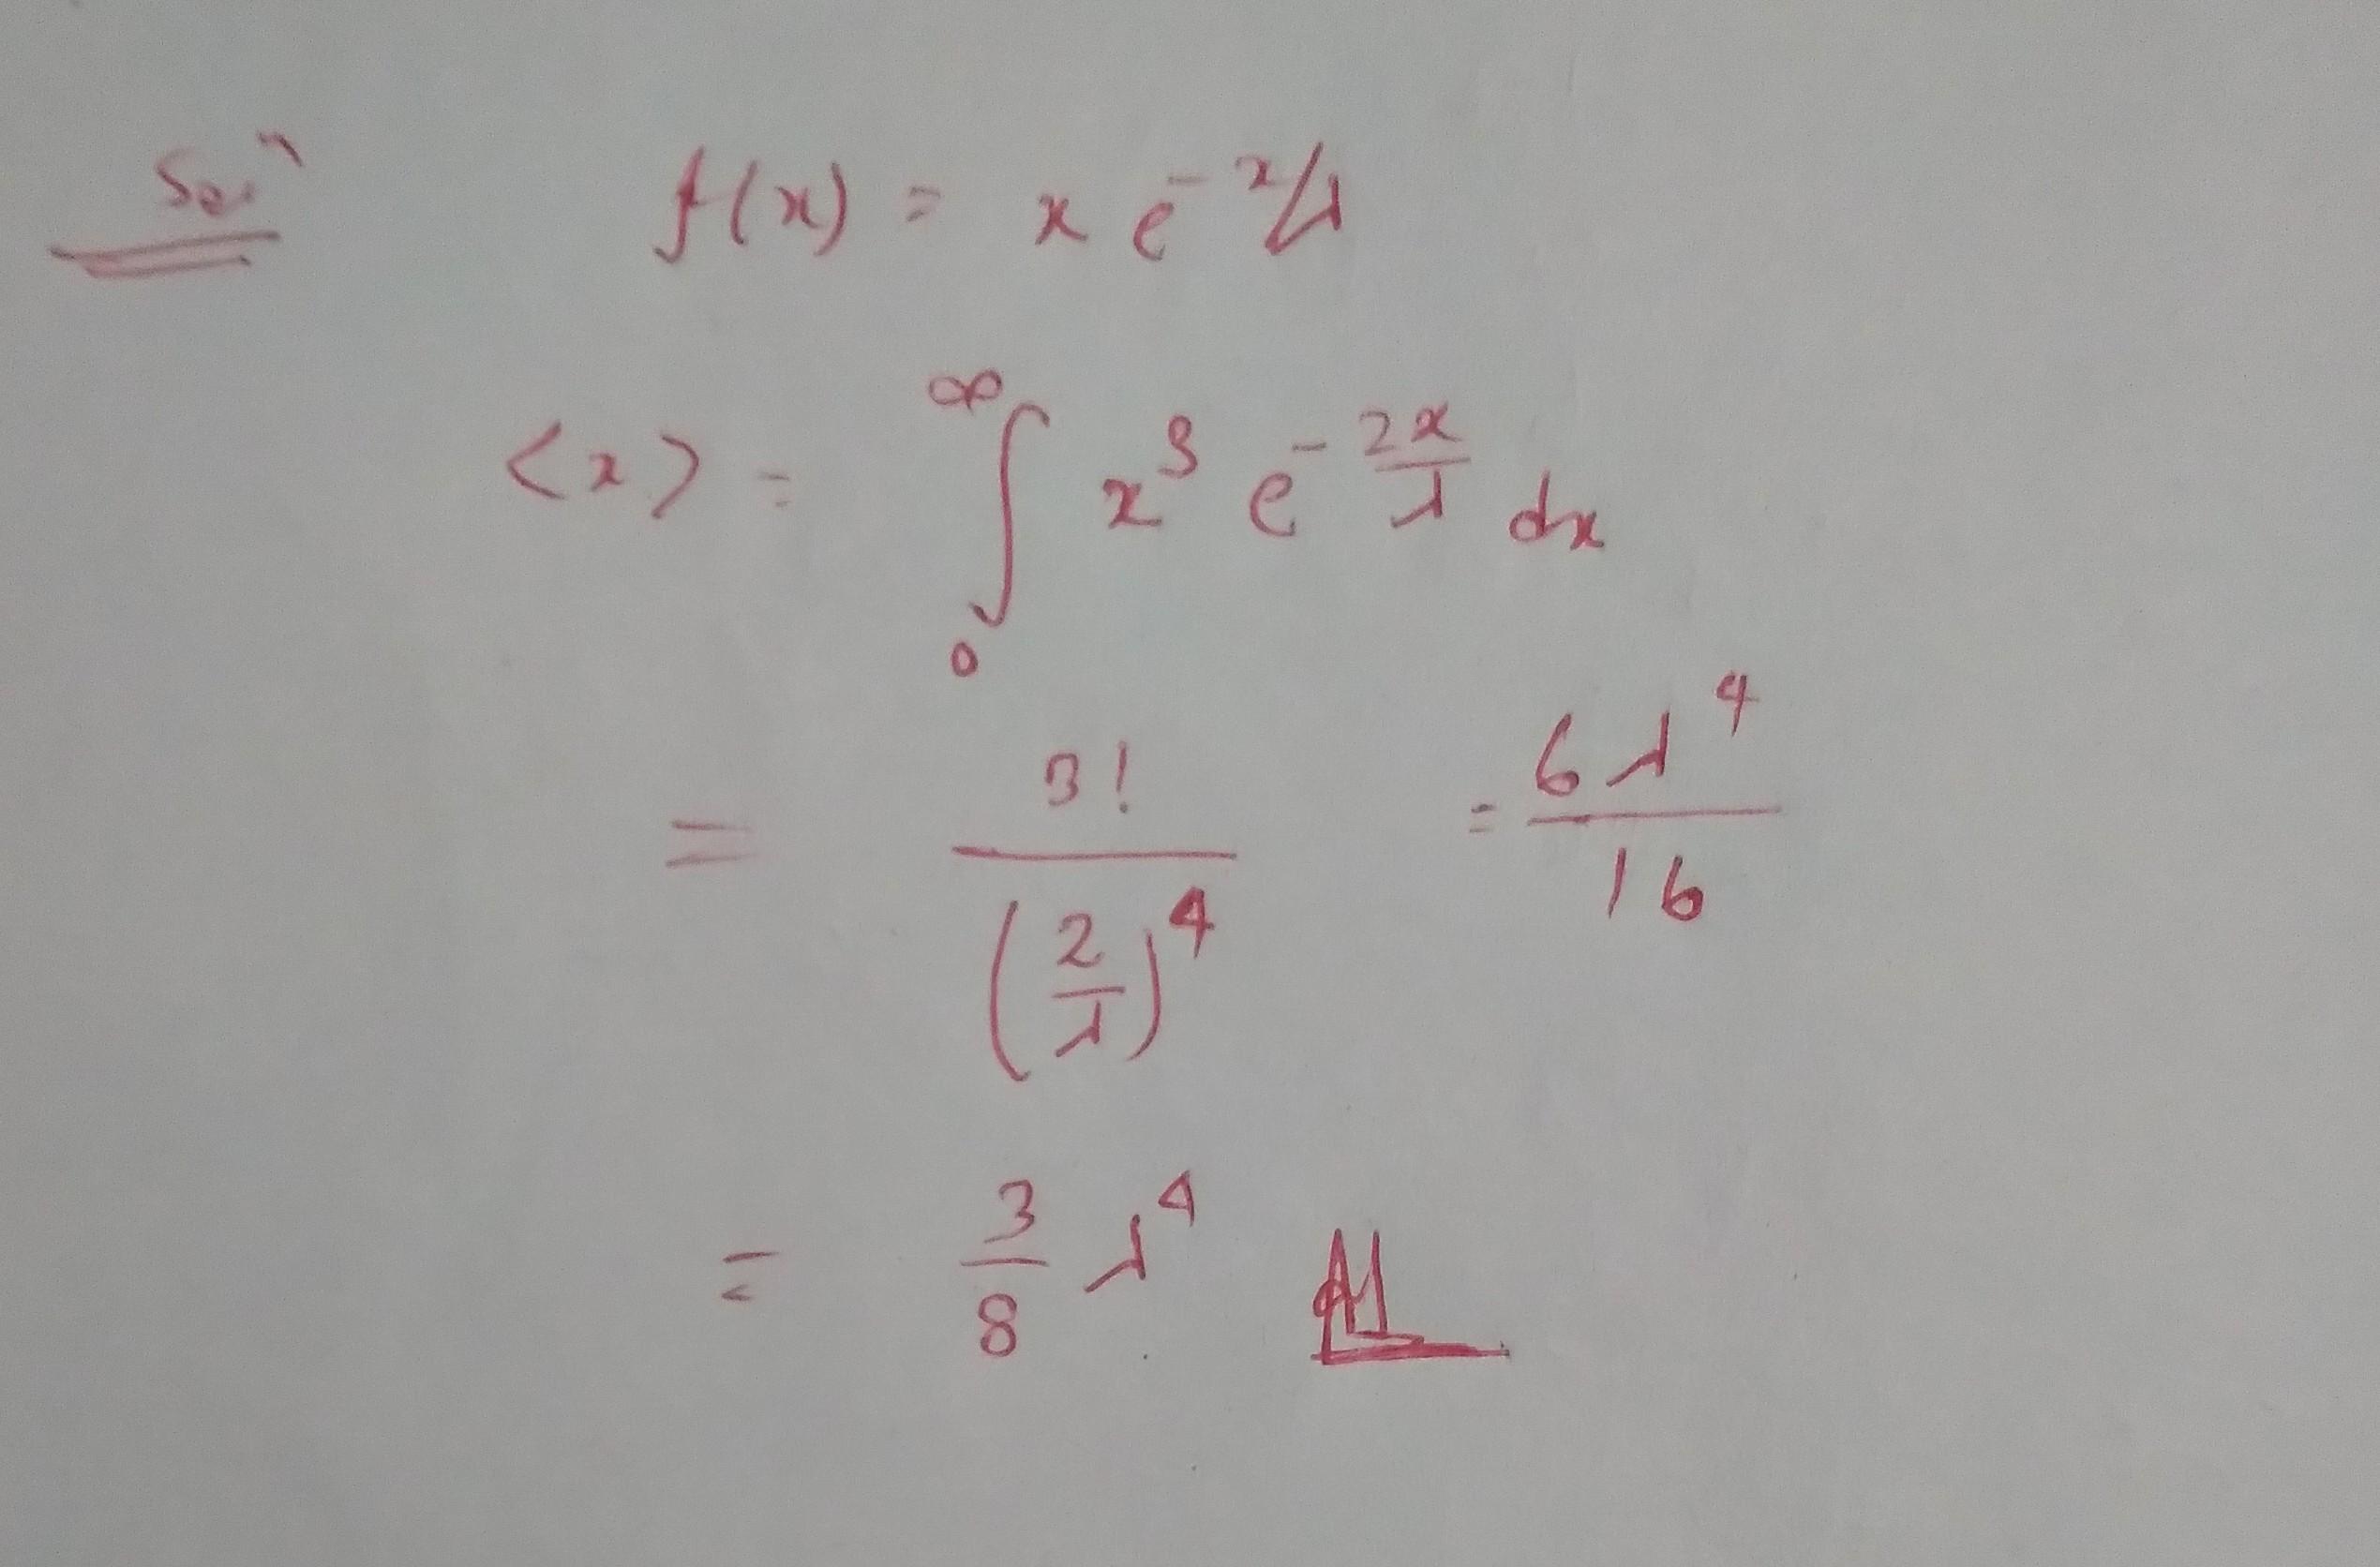 Solⁿ f(x) = x e^{-x/λ}
<x> = ∫_0^∞ x^3 e^{-2x/λ} dx
= 3!/(2/λ)^4 = 6λ^4/16
= 3/8 λ^4